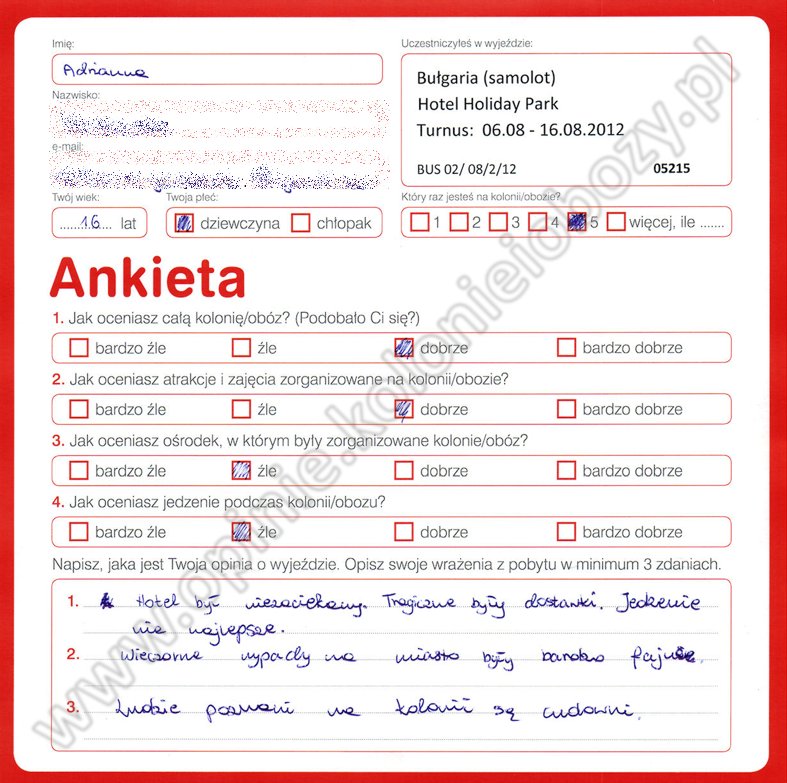 Imię:
Adrianna
Nazwisko:
e-mail:
Twój wiek:
16 lat
Twoja płeć:
dziewczyna chłopak
Uczestniczyłeś w wyjeździe:
Bułgaria (samolot)
Hotel Holiday Park
Turnus: 06.08 - 16.08.2012
BUS 02/ 08/2/12 05215
Który raz jesteś na kolonii/obozie?
1 2 3 4 5 więcej, ile .......
Ankieta
1. Jak oceniasz całą kolonię/obóz? (Podobało Ci się?)
bardzo źle źle dobrze bardzo dobrze
2. Jak oceniasz atrakcje i zajęcia zorganizowane na kolonii/obozie?
bardzo źle źle dobrze bardzo dobrze
3. Jak oceniasz ośrodek, w którym były zorganizowane kolonie/obóz?
bardzo źle źle dobrze bardzo dobrze
4. Jak oceniasz jedzenie podczas kolonii/obozu?
bardzo źle źle dobrze bardzo dobrze
Napisz, jaka jest Twoja opinia o wyjeździe. Opisz swoje wrażenia z pobytu w minimum 3 zdaniach.
1. Hotel był niezaciekawy. Tragiczne były dostawki. Jedzenie
nie najlepsze.
2. Wieczorne wypady na miasto były bardzo fajne.
3. Ludzie poznani na kolonii są cudowni.
www.opinie.kolonieiobozy.pl